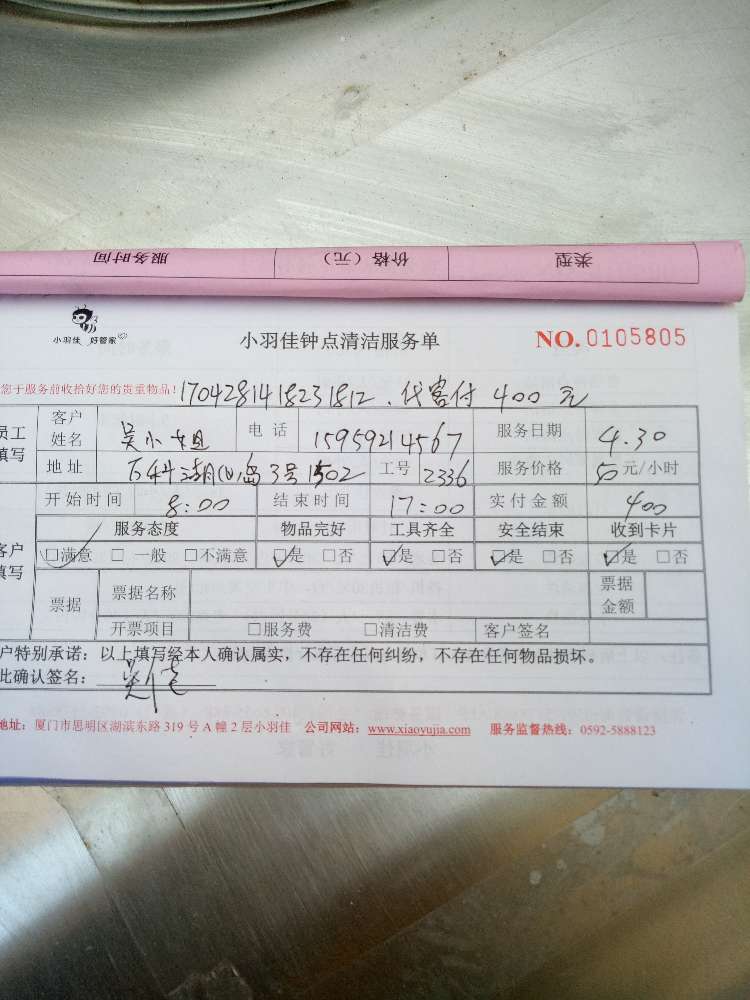 服务时间 价格（元） 类型
小羽佳 好管家
小羽佳钟点清洁服务单 NO.0105805
您于服务前收拾好您的贵重物品！1704281418231812、代客付 400 元
员工填写 客户姓名 吴小姐 电话 15959214567 服务日期 4.30
地址 万科湖心岛3号1502 工号 2336 服务价格 50 元/小时
开始时间 8:00 结束时间 17:00 实付金额 400
客户填写 服务态度 物品完好 工具齐全 安全结束 收到卡片
☑满意 □ 一般 □不满意 ☑是 □否 ☑是 □否 ☑是 □否 ☑是 □否
票据 票据名称 票据金额
开票项目 □服务费 □清洁费 客户签名
户特别承诺：以上填写经本人确认属实，不存在任何纠纷，不存在任何物品损坏。
此确认签名：
地址：厦门市思明区湖滨东路 319 号 A 幢 2 层小羽佳 公司网站：www.xiaoyujia.com 服务监督热线：0592-5888123